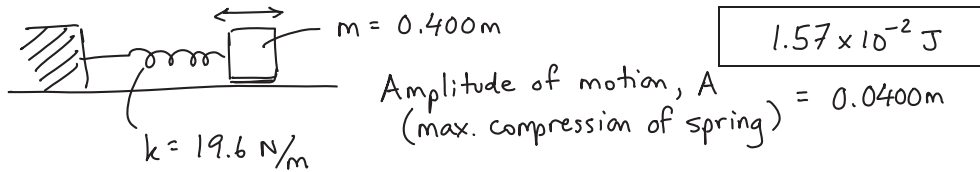 m = 0.400m
1.57 x 10⁻² J
Amplitude of motion, A
(max. compression of spring) = 0.0400m
k = 19.6 N/m